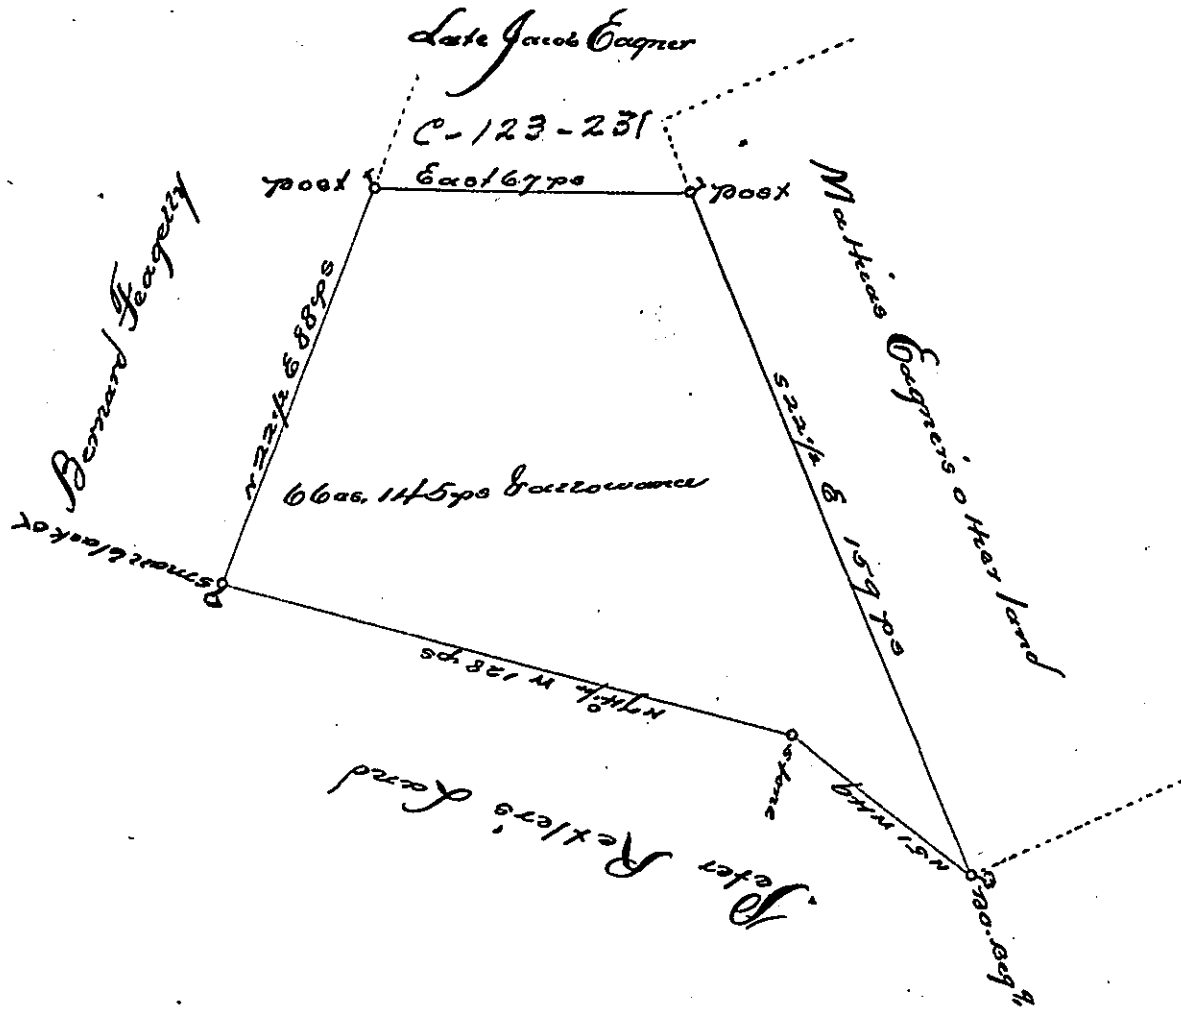 Late Jacob Eagner
C-123-231
post
East 67 ps
post
Bernard Feagelly
N 22 1/2 E 88 ps
Mathias Eagner's other land
S 22 1/2 E 159 ps
66 as. 145 ps & allowance
small black ok
N 74 1/2 W 128 ps
stone
N 51 W 49
Peter Rexler's Land
BO. Beg'g